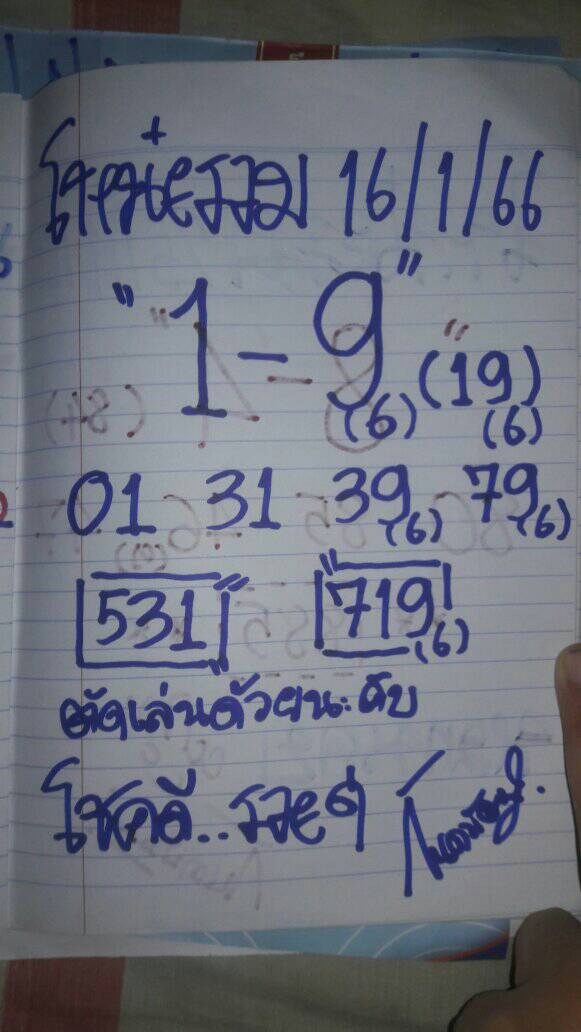 16/1/66
"1-9"
(6) (19)
(6)
01 31 39 79
(6) (6)
531 719
(6)
คัดเล่นด้วยนะคับ
โชคดี..รวยๆ